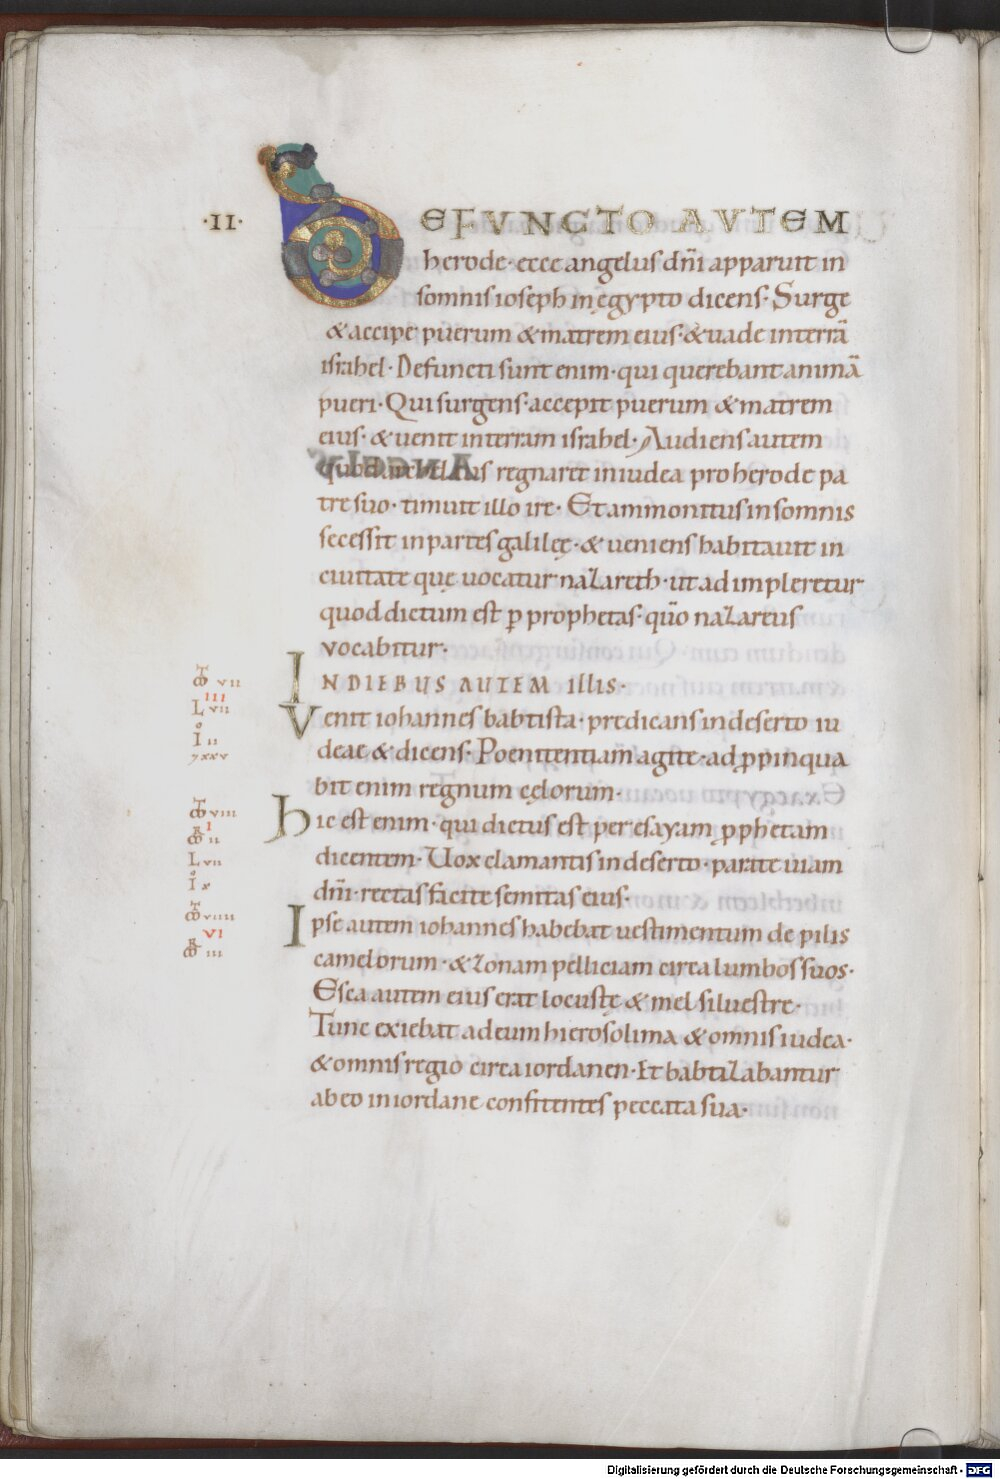 ·II·
DEFUNCTO AUTEM
herode· ecce angelus dñi apparuit in
somnis ioseph in ęgypto dicens· Surge
& accipe puerum & matrem eius· & uade in terrā
israhel· Defuncti sunt enim· qui querebant animā
pueri· Qui surgens· accepit puerum & matrem
eius· & uenit in terram israhel· Audiens autem
quod regnaret in iudea pro herode pa
tre suo· timuit illo ire· Et ammonitus in somnis
secessit in partes galileę· & ueniens habitauit in
ciuitate quę uocatur nazareth· ut adimpleretur
quod dictum est ꝑ prophetas· qūo nazareus
vocabitur·
IN DIEBUS AUTEM ILLIS·
Venit iohannes babtista· predicans in deserto iu
deae & dicens· Poenitentiam̄ agite· adꝓpinqua
bit enim regnum cęlorum·
hic est enim· qui dictus est per esayam ꝓphetam
dicentem· Uox clamantis in deserto· parate uiam
dñi· rectas facite semitas eius·
Ipse autem iohannes habebat uestimentum de pilis
camelorum· & zonam pelliciam circa lumbos suos·
Esca autem eius erat locustę & mel siluestre·
Tunc exiebat ad eum hierosolima & omnis iudea·
& omnis regio circa iordanen· Et babtizabantur
ab eo in iordane confitentes peccata sua·
vii
III
L vii
I ii
viii
I
ii
L vii
I x
viiii
VI
iii
Digitalisierung gefördert durch die Deutsche Forschungsgemeinschaft - DFG